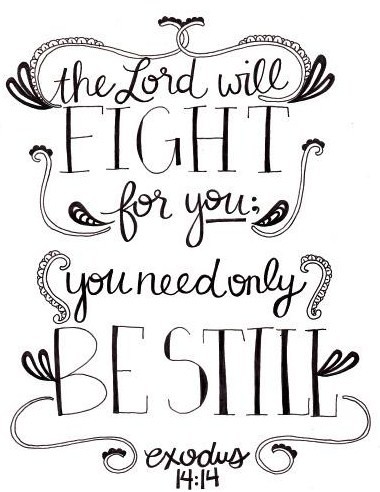 the Lord will
FIGHT
for you;
you need only
BE STILL
exodus
14:14